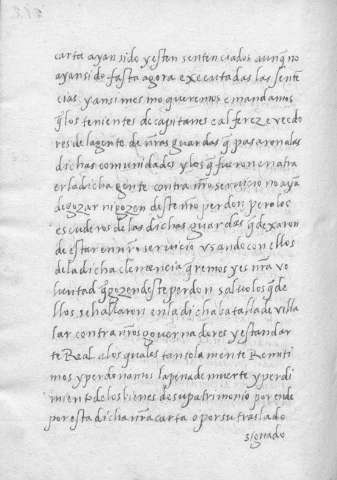 carta ayan sido y esten sentenciados aunq̃ no
ayan sido fasta agora executadas las sente
cias y ansi mesmo queremos e mandamos
q̃ los tenientes de capitanes e alferez e veedo
res de la gente de nr̃as guardas q̃ pasaron a las
dichas comunidades y los q̃ fueron en atra
er la dicha gente contra nr̃o servicio no aya
de gozar ni gozen deste nr̃o perdon pero los
escuderos de las dichas guardas q̃ dexaron
de estar en nr̃o servicio usando con ellos
de la dicha clemencia q̃remos y es nr̃a vo
luntad q̃ gozen deste perdon salvo los q̃ de
llos se hallaron en la dicha batalla de villa
lar contra nr̃os governadores y estandar
te Real a los quales tan solamente Remiti
mos y perdonamos la pena de muerte y perdi
miento de los bienes de su patrimonio por ende
por esta dicha nr̃a carta o por su traslado
signado